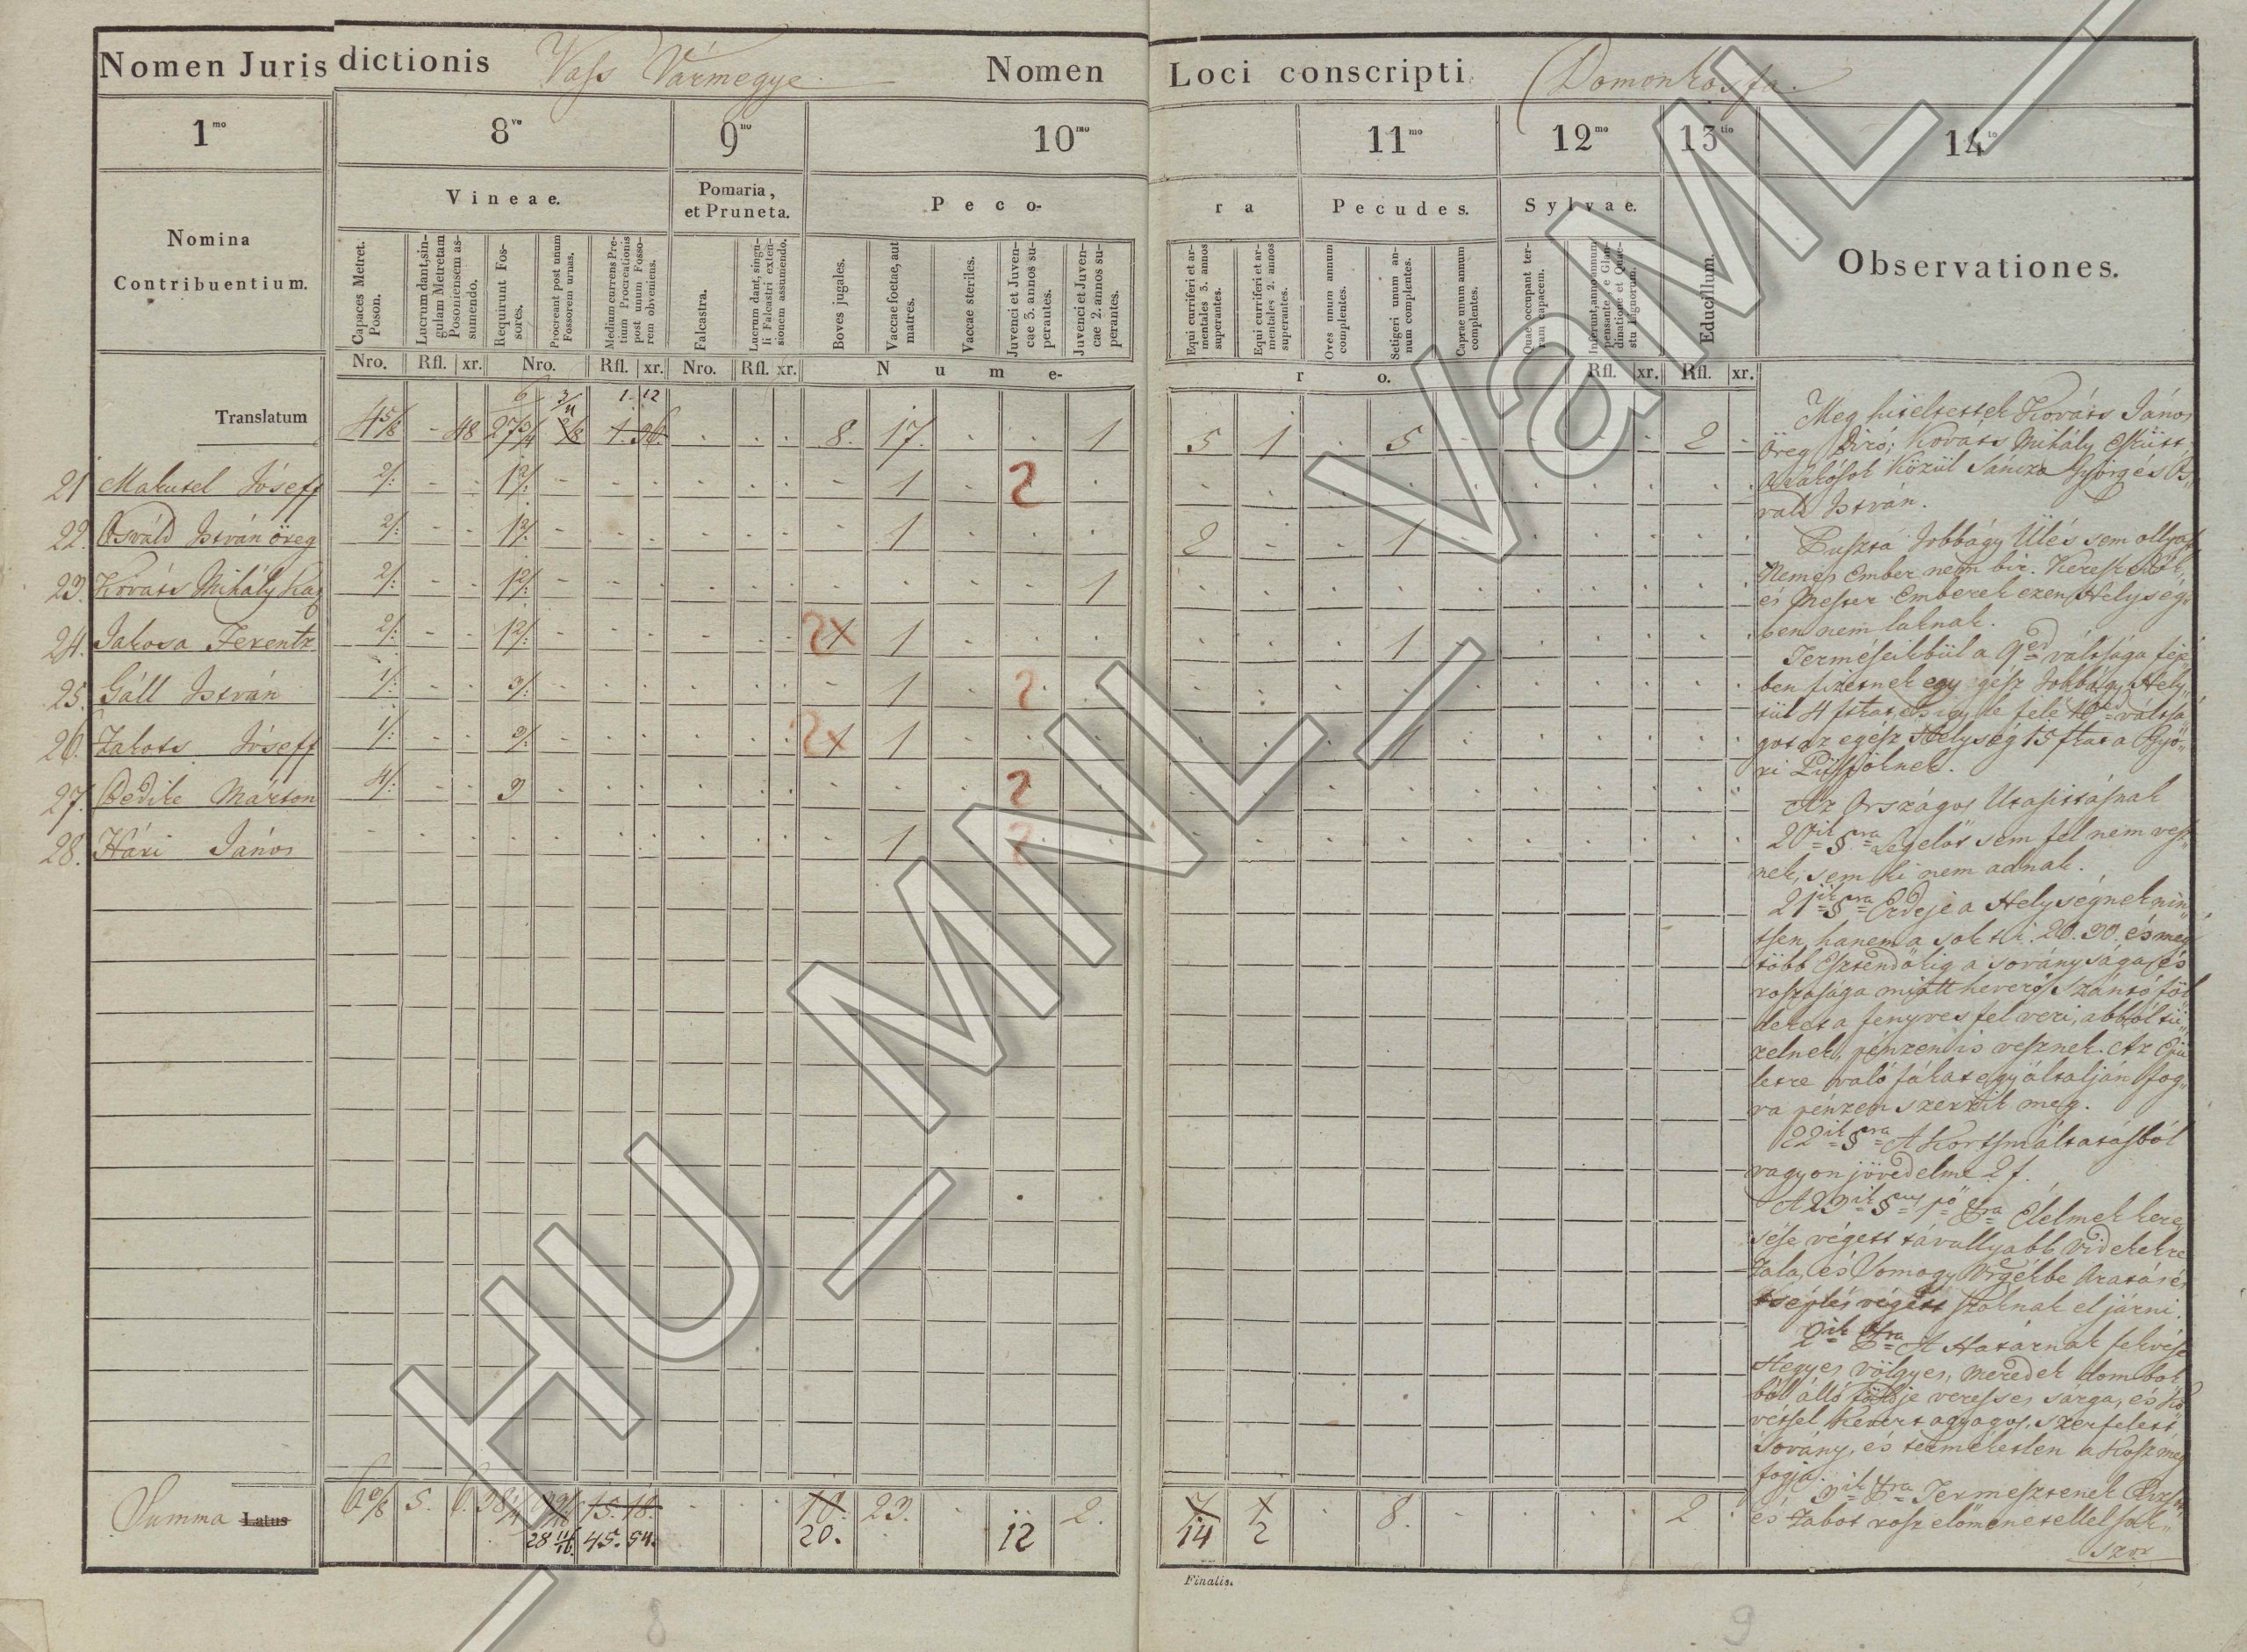 Nomen Jurisdictionis Vass Vármegye. Nomen Loci conscripti Domonkosfa.
1mo 8vo 9no 10mo 11mo 12mo 13tio 14to
Nomina Contribuentium.
Vineae.
Pomaria, et Pruneta.
Pecora
Pecudes.
Sylvae.
Educillum.
Observationes.
Capaces Metret. Poson.
Lucrum dant, singulam Metretam Posoniensem assumendo.
Requirunt Fossores.
Procreant post unum Fossorem urnas.
Medium currens Pretium Procreationis post unum Fossorem obveniens.
Falcastra.
Lucrum dant, singuli Falcastri extensionem assumendo.
Boves jugales.
Vaccae foetae, aut matres.
Vaccae steriles.
Juvenci et Juvencae 3. annos superantes.
Juvenci et Juvencae 2. annos superantes.
Equi curriferi et armentales 3. annos superantes.
Equi curriferi et armentales 2. annos superantes.
Oves unum annum complentes.
Setigeri unum annum complentes.
Caprae unum annum complentes.
Quae occupant terram capacem.
Nro. Rfl. xr. Nro. Rfl. xr. Nro. Rfl. xr. Nume-
ro. Rfl. xr. Rfl. xr.
6 3/4 1. 12
Translatum 4 5/8 - 48 27 3/4 1. 36. 8. 17. 1 5 1 5 2 -
21 Makutel Jóseff 2/: 12/: 1 2
22. Osváld István öreg 2/: 12/: 1 2 1
23. Kováts Mihály 2/: 12/: 1
24. Jakosa Ferentz 2/: 12/: 2 1 1 1
25. Gáll István 1/: 3/: 1 2
26. Zakots Jóseff 1/: 3/: 2 1 1 1
27. Bedike Márton 4/: 3 2
28. Hári János 1 2
Summa Latus 5. 6. 15. 18. 10. 23. 2. 7 1 8. 2
28 11/16. 45. 54. 20. 12 14 2
Meg hiteltettek Kováts János
öreg Biró; Kováts Mihály Esküt,
a Lakósok Közül Sáncza György és Os,,
vald István.
Puszta Jobbágy Ülés sem ollyas
Nemes Ember nem bir. Kereskedők
és Mester Emberek ezen Helység,,
ben nem laknak.
Terméseikbül a 9ed váltsága fejé
ben fizetnek egy egész Jobbágy Hely,,
tül 4 ftkat,
got az egész Helység 15 ftkat a Győ,,
ri Püspöknek.
Az Országos Utasitásnak
20ik §ra Legelőt sem fel nem vesz,,
nek, sem ki nem adnak.
21ik §ra Erdeje a Helységnek nin
tsen, hanem a sok t. i. 20. 30. és meg
több Esztendőkig a soványsága és
roszasága miatt heverő Szántó föl
deket a fenyves fel veri, abból tü,,
zelnek, pénzen is vesznek. Az Épü
letre való fákat egyáltalján fog,,
va pénzen szerzik meg.
22ik §ra A Kortsmáltatásból
vagyon jövedelme 2 f.
A 23ik § 1ső Élelmek kere
sése végett távullyabb Vidékekre
Zala, és Somogy Vrgyékbe Aratás és
tséplés végett szoknak eljárni.
2ik A Határnak fekvése
Hegyes, völgyes, meredek dombok
ból álló földje veresses sárga, és kö
véttsel kevert agyagos, szerfelett
sovány, és terméketlen a Kosz meg
fogja.
3ik Termesztenek Rozsot
és Zabot rosz előmenetellel sok,,
szor
Finalis.
8 9
HU_MNL_VaML_